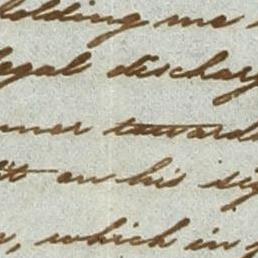 holding me
legal discharg
nner towards
lt on his sig
, which in